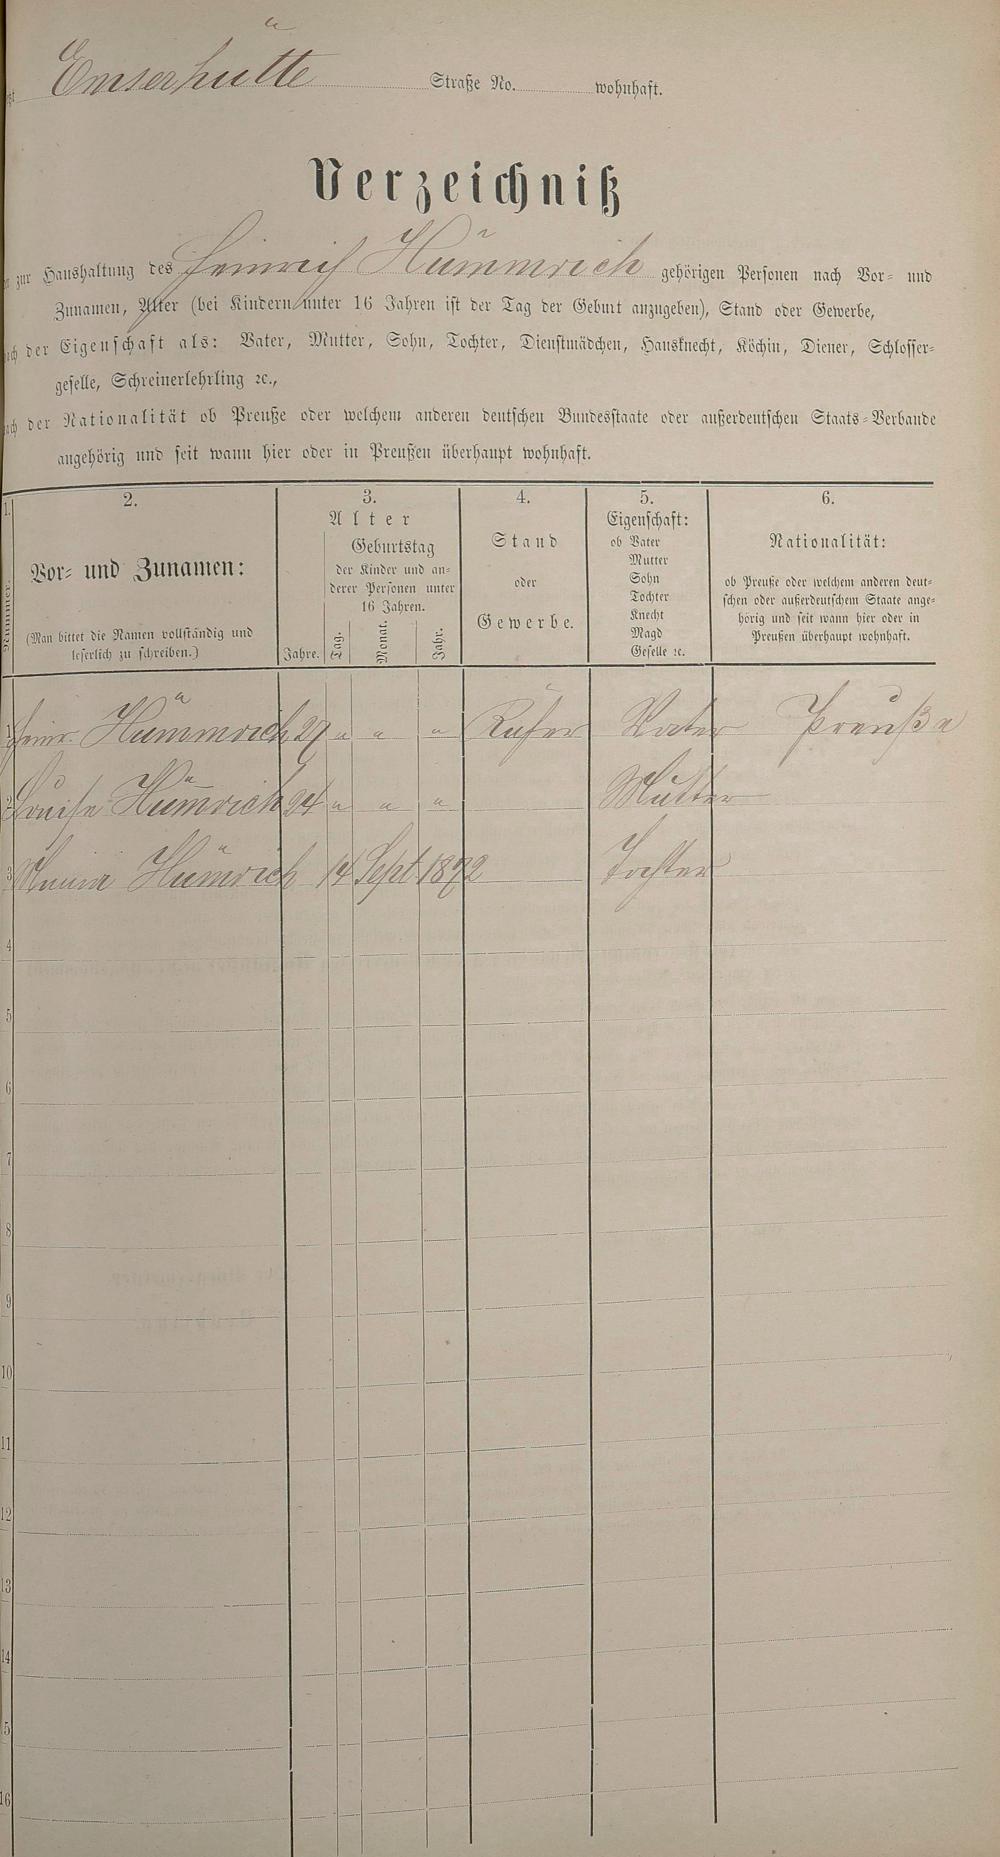 Emserhütte Straße No. wohnhaft.
Verzeichniß
zur Haushaltung des Heinrich Hümmrich gehörigen Personen nach Vor- und
Zunamen, Alter (bei Kindern unter 16 Jahren ist der Tag der Geburt anzugeben), Stand oder Gewerbe,
der Eigenschaft als: Vater, Mutter, Sohn, Tochter, Dienstmädchen, Hausknecht, Köchin, Diener, Schlosser-
geselle, Schreinerlehrling ꝛc.,
der Nationalität ob Preuße oder welchem anderen deutschen Bundesstaate oder außerdeutschen Staats-Verbande
angehörig und seit wann hier oder in Preußen überhaupt wohnhaft.
1.
Nummer.
2.
Vor- und Zunamen:
(Man bittet die Namen vollständig und
leserlich zu schreiben.)
3.
Alter
Geburtstag
der Kinder und an-
derer Personen unter
16 Jahren.
Jahre. Tag. Monat. Jahr.
4.
Stand
oder
Gewerbe.
5.
Eigenschaft:
ob Vater
Mutter
Sohn
Tochter
Knecht
Magd
Geselle ꝛc.
6.
Nationalität:
ob Preuße oder welchem anderen deut-
schen oder außerdeutschem Staate ange-
hörig und seit wann hier oder in
Preußen überhaupt wohnhaft.
1 Heinr. Hümmrich 27 " " " Küfer Vater Preuße
2 Louise Hümrich 24 " " " Mutter
3 Hümrich 14 Sept 1872 Tochter
4
5
6
7
8
9
10
11
12
13
14
15
16